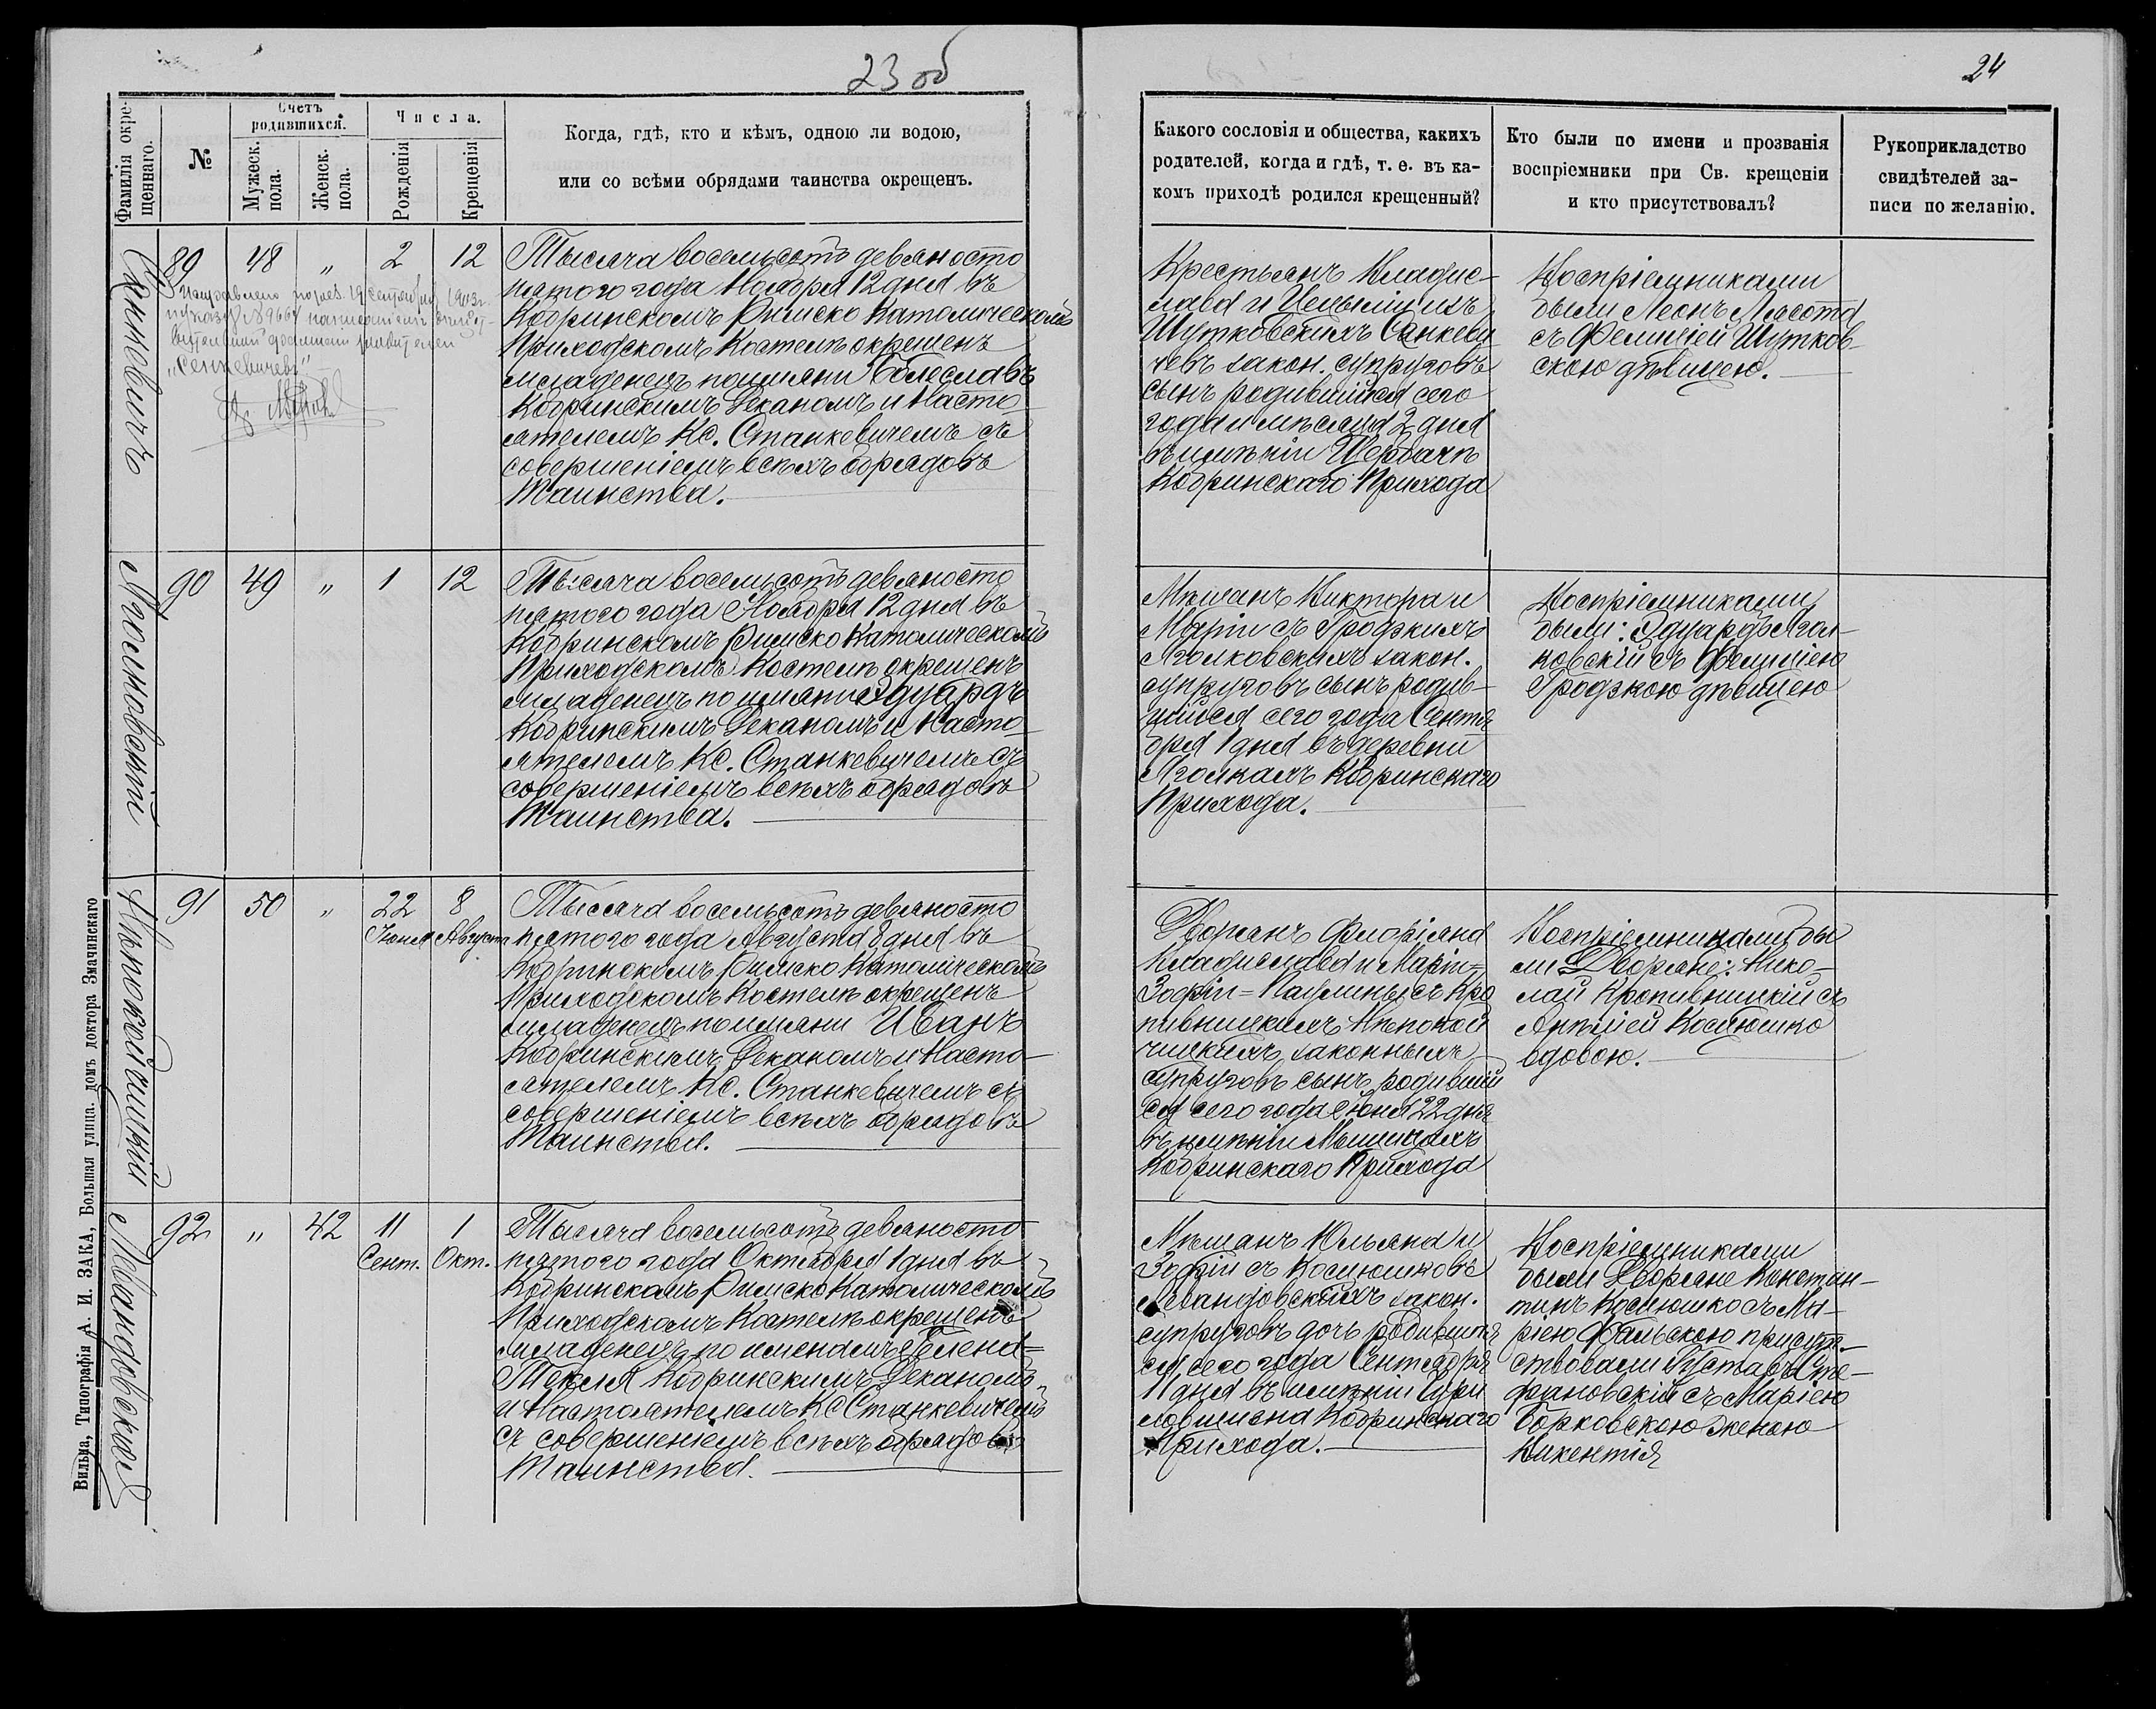 23 об
24
Фамилія окре-
щеннаго.
№
Счетъ
родившихся.
Мужеск.
пола.
Женск.
пола.
Числа.
Рожденія
Крещенія
Когда, гдѣ, кто и кѣмъ, одною ли водою,
или со всѣми обрядами таинства окрещенъ.
Какого сословія и общества, какихъ
родителей, когда и гдѣ, т. е. въ ка-
комъ приходѣ родился крещенный?
Кто были по имени и прозванія
воспріемники при Св. крещеніи
и кто присутствовалъ?
Рукоприкладство
свидѣтелей за-
писи по желанію.
89 48 „ 2 12
Исправлено 19 1913 г.
„Сенкевичевъ"
Тысяча восемьсотъ девяносто
пятого года Ноября 12 дня въ
Кобринскомъ Римско Католическомъ
Приходскомъ Костелѣ окрещенъ
младенецъ по имяни Болеславъ
Кобринскимъ Деканомъ и Насто-
ятелемъ Кс. Станкевичемъ съ
совершеніемъ всѣхъ обрядовъ
Таинства.
Крестьянъ Владис-
лава и
Шутковскихъ
чевъ закон. супруговъ
сынъ родившійся сего
года и мѣсяца 2 дня
въ имѣніи
Кобринскаго Прихода
Воспріемниками
были Леонъ Лясота
съ Фелиціей Шутков-
скою дѣвицею.
Яголковскій
90 49 „ 1 12
Тысяча восемьсотъ девяносто
пятого года Ноября 12 дня въ
Кобринскомъ Римско Католическомъ
Приходскомъ Костелѣ окрещенъ
младенецъ по имяни Эдуардъ
Кобринскимъ Деканомъ и Насто-
ятелемъ Кс. Станкевичемъ съ
совершеніемъ всѣхъ обрядовъ
Таинства.
Мѣщанъ Виктора и
Маріи съ Гродзкихъ
Яголковскихъ закон.
супруговъ сынъ родив-
шійся сего года Сентя
бря 1 дня въ деревни
Яголкахъ Кобринскаго
Прихода.
Воспріемниками
были: Эдуардъ Ягол-
ковскій съ Фелиціею
Гродзкою дѣвицею
Нѣпокойчицкій
91 50 „ 22 8
Іюня Августа
Тысяча восемьсотъ девяносто
пятого года Августа 8 дня въ
Кобринскомъ Римско Католическомъ
Приходскомъ Костелѣ окрещенъ
младенецъ по имяни Иванъ
Кобринскимъ Деканомъ и Насто-
ятелемъ Кс. Станкевичемъ съ
совершеніемъ всѣхъ обрядовъ
Таинства.
Дворянъ Флоріяна
Владислава и Маріи=
Зофіи=Паулины съ Кро
пивницкихъ Нѣпокой
чицкихъ законныхъ
супруговъ сынъ родивший
ся сего года Іюня 22 дня
въ имѣніи
Кобринскаго Прихода
Воспріемниками бы
ли Дворяне: Нико-
лай Кропивницкій съ
Костюшко
вдовою.
Левандовская
92 „ 42 11 1
Сент. Окт.
Тысяча восемьсотъ девяносто
пятого года Октября 1 дня въ
Кобринскомъ Римско Католическомъ
Приходскомъ Костелѣ окрещенъ
младенецъ по именамъ Елена=
Текля Кобринскимъ Деканомъ
и Настоятелемъ Кс Станкевичемъ
съ совершеніемъ всѣхъ обрядовъ
Таинства.
Мѣщанъ Юльяна и
Зофіи съ Костюшковъ
Левандовскихъ закон.
супруговъ дочь родившая
ся сего года Сентября
11 дня въ имѣніи
Кобринскаго
Прихода.
Воспріемниками
были Дворяне Констан-
тинъ Костюшко съ Ма-
ріею присут-
ствовали Густавъ Сте-
фановскій съ Маріею
Борковскою женою
Викентія
Вильна, Типографія А. И. ЗАКА, Большая улица. домъ доктора Змачинскаго